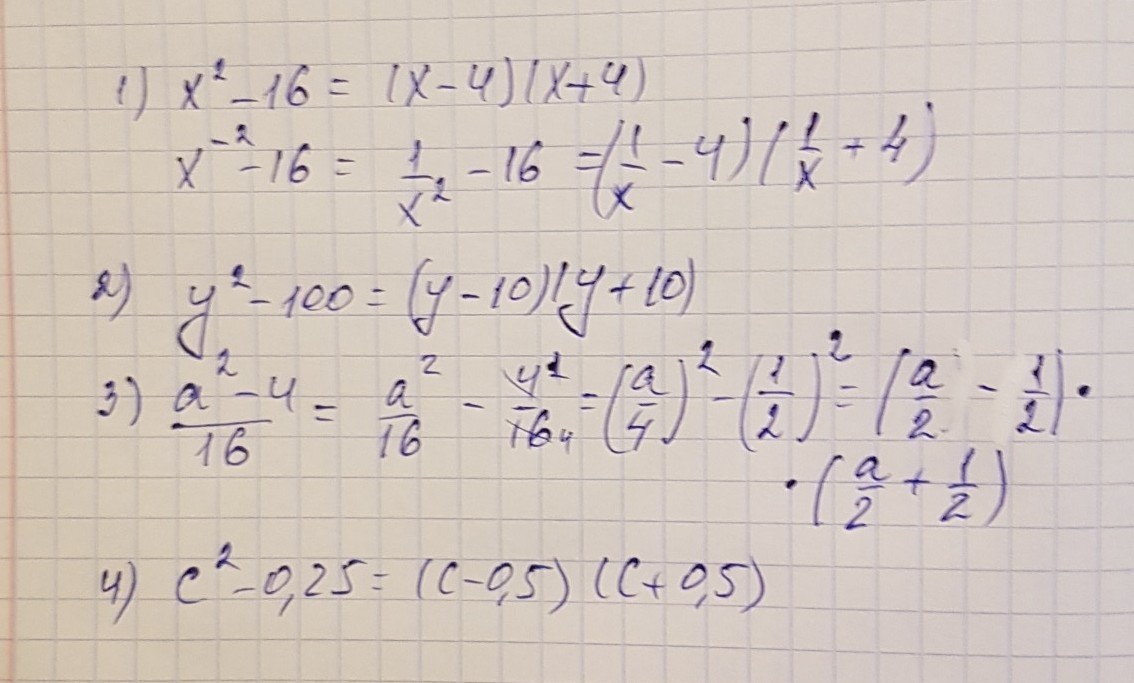 1) x² - 16 = (x - 4)(x + 4)
x⁻² - 16 = 1/x² - 16 = (1/x - 4)(1/x + 4)
2) y² - 100 = (y - 10)(y + 10)
3) (a² - 4)/16 = a²/16 - 4̸¹/1̸6̸₄ = (a/4)² - (1/2)² = (a/2 - 1/2) ·
· (a/2 + 1/2)
4) c² - 0,25 = (c - 0,5) (c + 0,5)